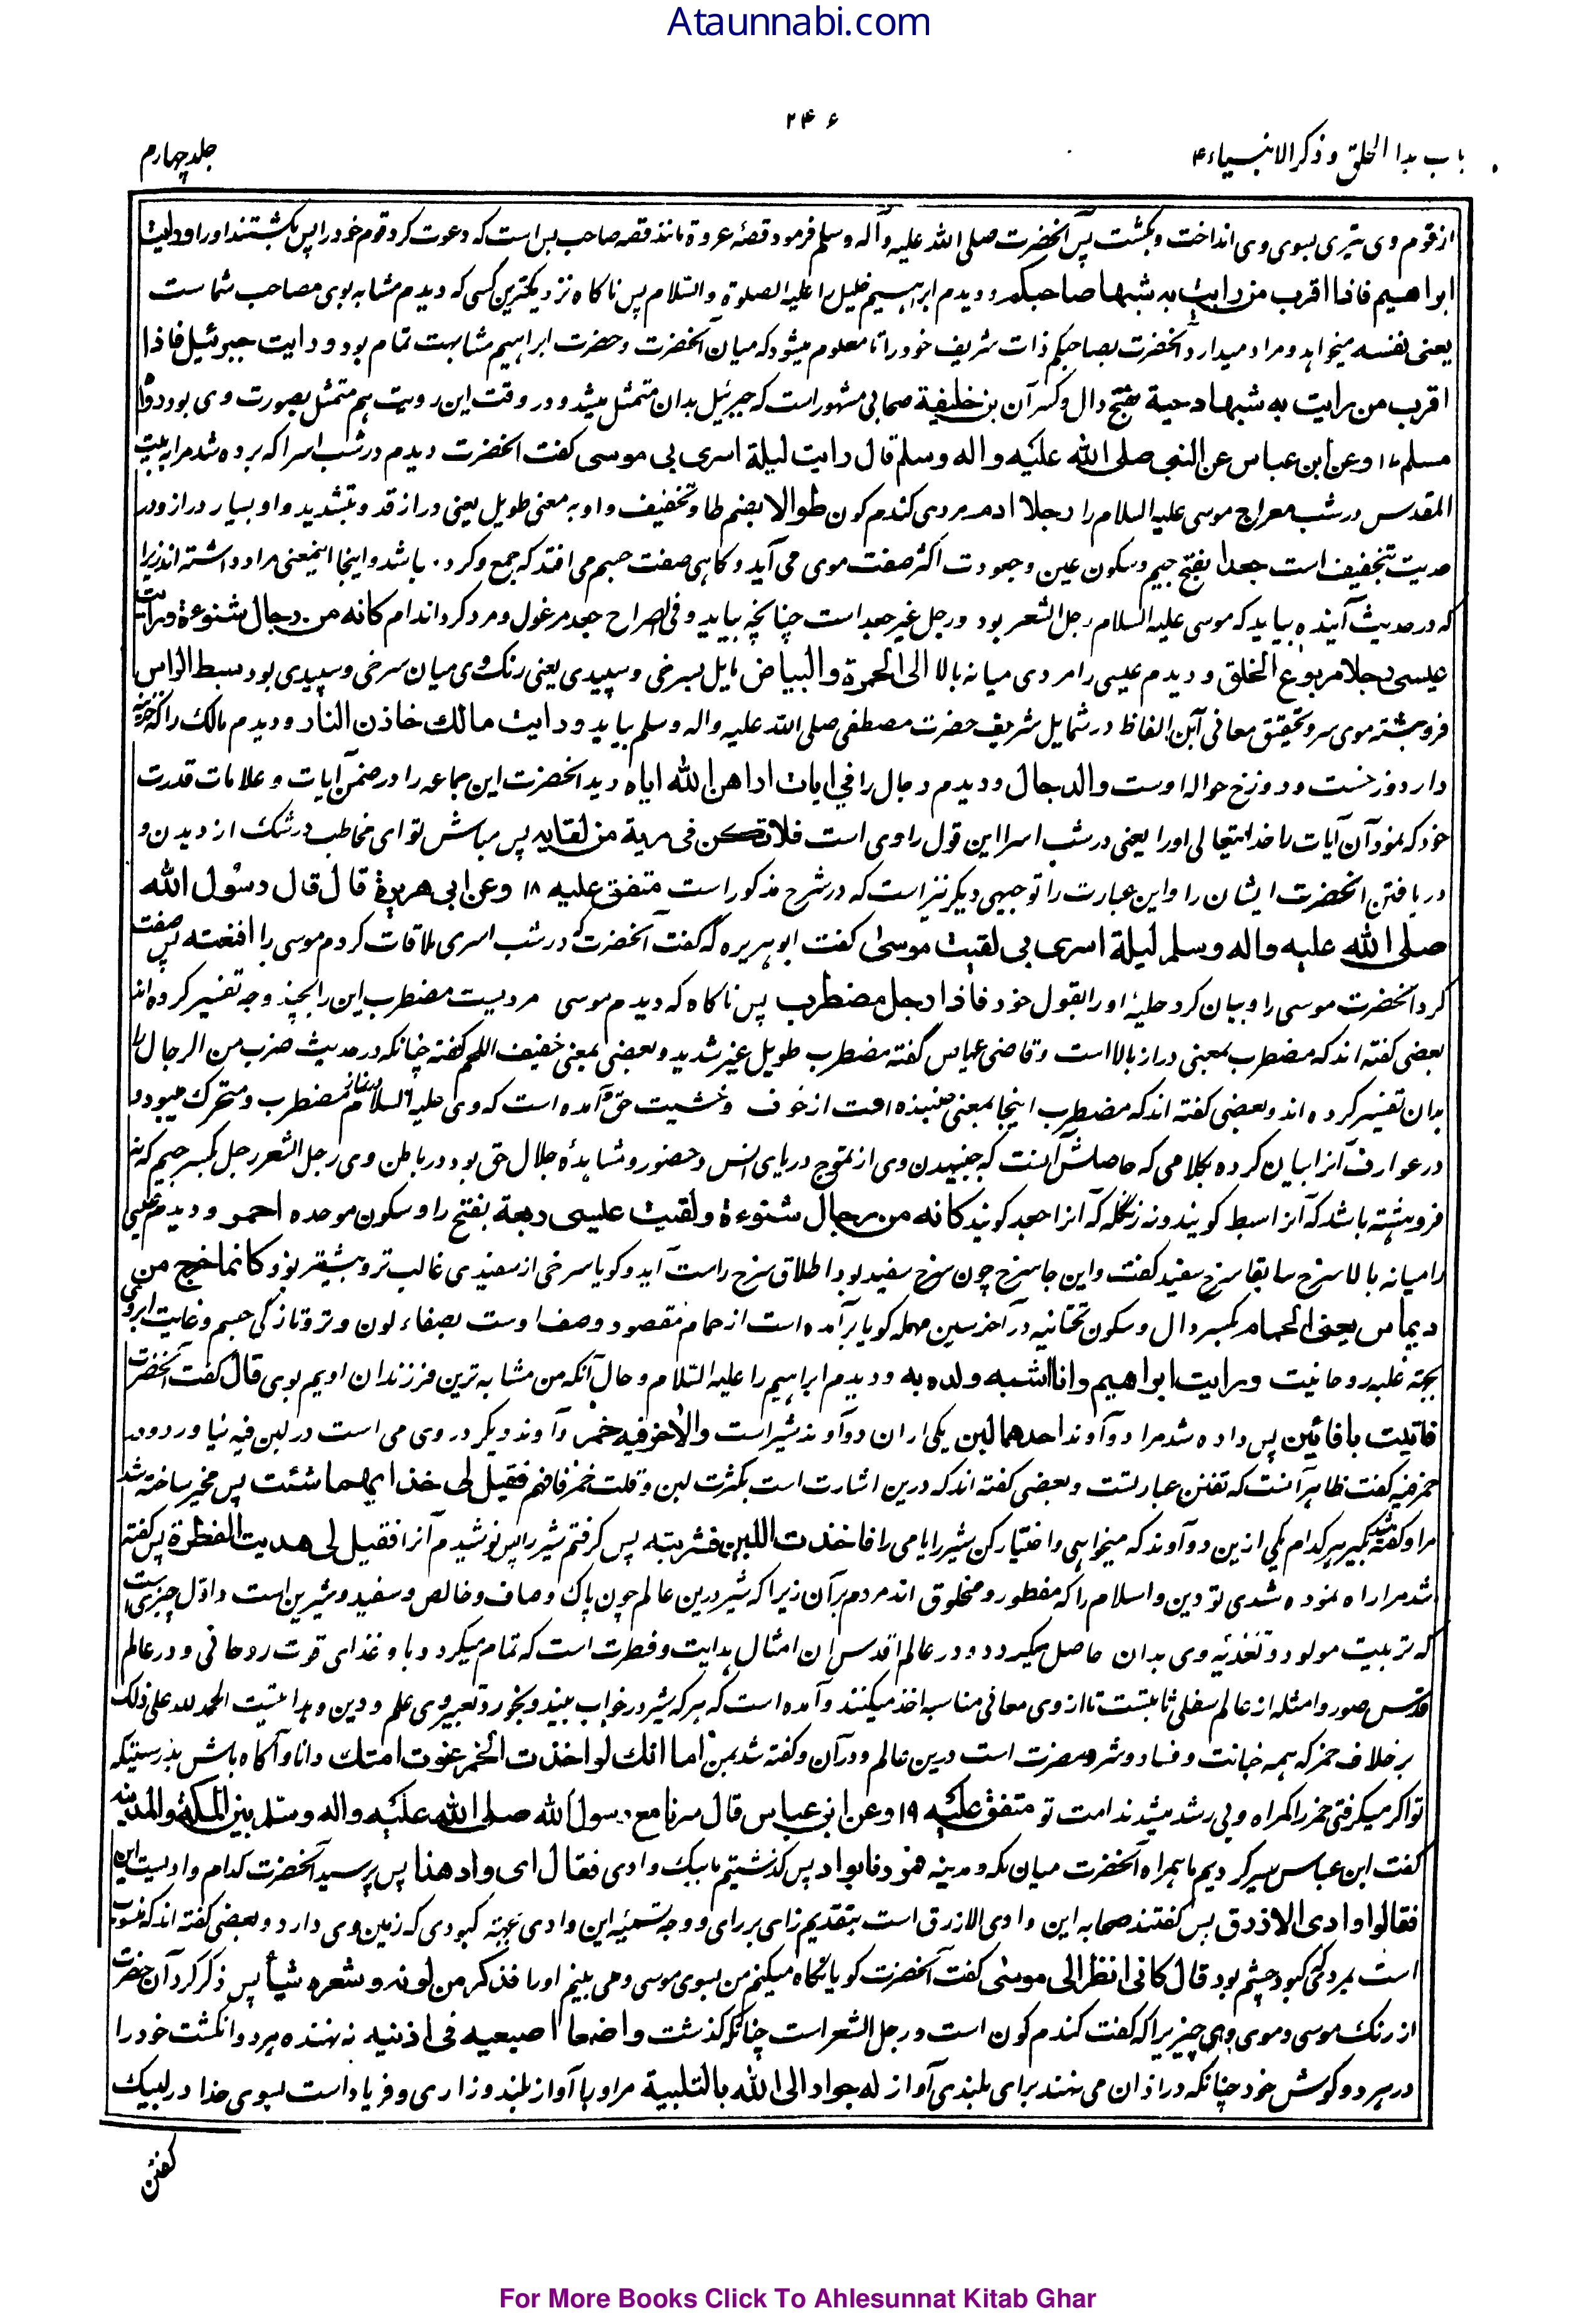 Ataunnabi.com
۲۴۶
باب بدا الخلق و ذکر الانبیاء ۴
جلد چهارم
از قوم وی تیری بسوی وی انداخت و بکشت پس آنحضرت صلی الله علیه وآله وسلم فرمود قصۀ عروة مانند قصه صاحب یس است که دعوت کرد قوم خود را پس بکشتند او را ورایت
ابراهیم فاذا اقرب من رایت به شبها صاحبکم و دیدم ابراهیم خلیل را علیه الصلوة والسلام پس ناکاه نزدیکترین کسی که دیدم مشابه بوی مصاحب شما ست
یعنی نفسه میخواهد و مراد میدارد آنحضرت بصاحبکم ذات شریف خود را تا معلوم میشود که میان آنحضرت و حضرت ابراهیم مشابهت تمام بود و رایت جبرئیل فاذا
اقرب من رایت به شبها دحیة بفتح دال و کسر آن بن خلیفة صحابی مشهور است که جبرئیل بدان متمثل میشد و در وقت این رویت هم متمثل بصورت وی بود رواه
مسلم ۱۷ وعن ابن عباس عن النبی صلی الله علیه واله وسلم قال رایت لیلة اسری بی موسی کفت آنحضرت دیدم در شب اسرا که برده شد مرا به بیت
المقدس در شب معراج موسی علیه السلام را رجلا ادم مردی کندم کون طوالا بضم طا و تخفیف واو به معنی طویل یعنی دراز قد و بتشدید واو بسیار دراز و در
حدیث تخفیف است جعدا بفتح جیم و سکون عین و جعودت اکثر صفت موی می آید و کاهی صفت جسم می افتد که جمع و کرد باشد و اینجا اینمعنی مراد داشته اند زیرا
که در حدیث آینده بیاید که موسی علیه السلام رجل الشعر بود و رجل غیر جعد است چنانچه بیاید و فی الصراح جعد مرغول و مرد کرد اندام کانه من رجال شنوءة ورایت
عیسی رجلا مربوع الخلق و دیدم عیسی را مردی میانه بالا الی الحمرة والبیاض مایل بسرخی و سپیدی یعنی رنک وی میان سرخی و سپیدی بود سبط الراس
فروهشته موی سر و تحقیق معانی این الفاظ در شمایل شریف حضرت مصطفی صلی الله علیه واله وسلم بیاید و رایت مالك خازن النار و دیدم مالک را که خزینه
دار دوزخست و دوزخ حواله اوست والدجال و دیدم دجال را فی ایات اراهن الله ایاه دید آنحضرت این جماعه را در ضمن آیات و علامات قدرت
خود که نمود آن آیات را خدایتعالی او را یعنی در شب اسرا این قول راوی است فلا تکن فی مریة من لقایه پس مباش تو ای مخاطب در شک از دیدن و
دریافتن آنحضرت ایشان را و این عبارت را توجیهی دیکر نیز است که در شرح مذکور است متفق علیه ۱۸ وعن ابی هریرة قال قال رسول الله
صلی الله علیه واله وسلم لیلة اسری بی لقیت موسی کفت ابوهریره که گفت آنحضرت که در شب اسری ملاقات کردم موسی را فنعته پس صفت
کرد آنحضرت موسی را و بیان کرد حلیۀ او را بقول خود فاذا رجل مضطرب پس ناکاه که دیدم موسی مردیست مضطرب این را بچند وجه تفسیر کرده اند
بعضی کفته اند که مضطرب بمعنی دراز بالا است و قاضی عیاض گفته مضطرب طویل غیر شدید و بعضی بمعنی خفیف اللحم کفته چنانکه در حدیث ضرب من الرجال را
بدان تفسیر کرده اند و بعضی کفته اند که مضطرب اینجا بمعنی جنبنده است از خوف و خشیت حق و آمده است که وی علیه السلام در نماز مضطرب و متحرک میبود و
در عوارف آنرا بیان کرده بکلامی که حاصلش آنست که جنبیدن وی از تموج دریای انس و حضور و مشاهدۀ جلال حق بود در باطن وی رجل الشعر رجل بکسر جیم که نه
فروهشته باشد که آنرا سبط کویند و نه زنگله که آنرا جعد کویند کانه من رجال شنوءة ولقیت عیسی ربعة بفتح را و سکون موحده احمر و دیدم عیسی
را میانه بالا سرخ سابقا سرخ سفید کفت و این جا سرخ چون سرخ سفید بود اطلاق سرخ راست آید و کویا سرخی از سفیدی غالب تر و بیشتر بود کانما خرج من
دیماس یعنی الحمام بکسر دال و سکون تحتانیه در آخر سین مهمله کویا برآمده است از حمام مقصود وصف اوست بصفاء لون و تر و تازگی جسم و غایت آبروئی
بجته غلبه روحانیت ورایت ابراهیم وانا اشبه ولده به و دیدم ابراهیم را علیه السلام و حال آنکه من مشابه ترین فرزندان اویم بوی قال کفت آنحضرت
فاتیت باناءین پس داده شد مرا دو آوند احدهما لبن یکی ازان دو آوند شیر است والاخر فیه خمر و آوند دیکر در وی می است در لبن فیه نیاورد و در
خمر فیه کفت ظاهر آنست که تفنن عبارتست و بعضی کفته اند که درین اشارت است بکثرت لبن و قلت خمر فافهم فقیل لی خذ ایهما شئت پس مخیر ساخته شد
مرا و کفته شد بکیر هر کدام یکی ازین دو آوند که میخواهی و اختیار کن شیر را یا می را فاخذت اللبن فشربته پس کرفتم شیر را پس نوشیدم آنرا فقیل لی هدیت الفطرة پس کفته
شد مرا راه نموده شدی تو دین و اسلام را که مفطور و مخلوق اند مردم بر آن زیرا که شیر درین عالم چون پاک و صاف و خالص و سفید و شیرین است و اول چیزی است
که تربیت مولود و تغذیه وی بدان حاصل میکردد و در عالم اقدس آن امثال هدایت و فطرت است که تمام میکردد با و غذای قوت روحانی و در عالم
قدس صور و امثله از عالم سفلی ثابتست تا از وی معانی مناسبه اخذ میکنند و آمده است که هر که شیر در خواب بیند و بخورد تعبیر وی علم و دین و هدایتیت الحمد لله علی ذلک
برخلاف خمر که همه خبانت و فساد و شر و مضرت است درین عالم و در آن و کفته شد بمن اما انك لو اخذت الخمر غوت امتك دانا و آکاه باش بدرستیکه
تو اکر میکرفتی خمر را کمراه و بی رشد میشدند امت تو متفق علیه ۱۹ وعن ابن عباس قال سرنا مع رسول الله صلی الله علیه واله وسلم بین المکة والمدینة
کفت ابن عباس سیر کردیم ما همراه آنحضرت میان مکه و مدینه فمررنا بواد پس کذشتیم ما بیک وادی فقال ای واد هذا پس پرسید آنحضرت کدام وادیست این
فقالوا وادی الازرق پس کفتند صحابه این وادی الازرق است بتقدیم زای بر رای و وجه تسمیه این وادی بجهته کبودی که زمین وی دارد و بعضی کفته اند که منسوب
است بمردکی کبود چشم بود قال کانی انظر الی موسی کفت آنحضرت کویا نکاه میکنم من بسوی موسی و می بینم او را فذکر من لونه و شعره شیأ پس ذکر کرد آن حضرت
از رنک موسی و موی وی چیزیرا که کفت کندم کون است و رجل الشعر است چنانکه کذشت واضعا اصبعیه فی اذنیه نهنده هر دو انکشت خود را
در هر دو کوش خود چنانکه در اذان می نهند برای بلندی آواز له جوار الی الله بالتلبیة مر او را آواز بلند و زاری و فریاد است بسوی خدا در لبیک
کفتن
For More Books Click To Ahlesunnat Kitab Ghar